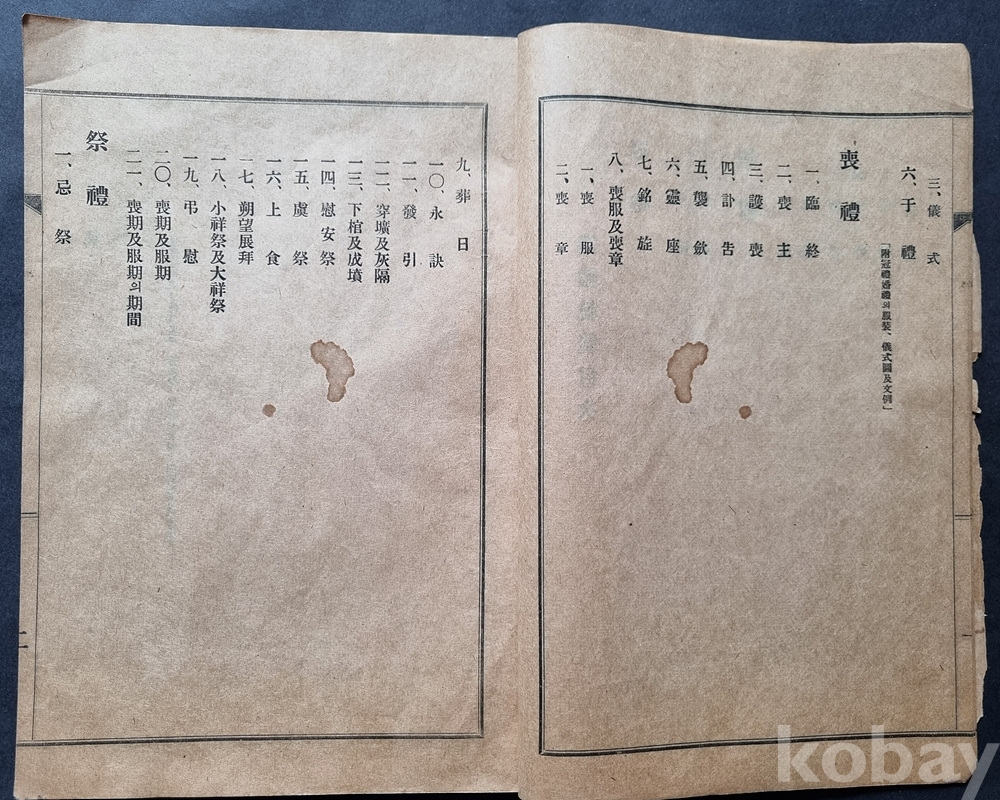 三、儀式
六、于禮
「附冠禮婚禮의服裝、儀式圖及文例」
喪禮
一、臨終
二、喪主
三、護喪
四、訃告
五、襲歛
六、靈座
七、銘旌
八、喪服及喪章
一、喪服
二、喪章
九、葬日
一〇、永訣
一一、發引
一二、穿壙及灰隔
一三、下棺及成墳
一四、慰安祭
一五、虞祭
一六、上食
一七、朔望展拜
一八、小祥祭及大祥祭
一九、弔慰
二〇、喪期及服期
二一、喪期及服期의期間
祭禮
一、忌祭
二
kobay